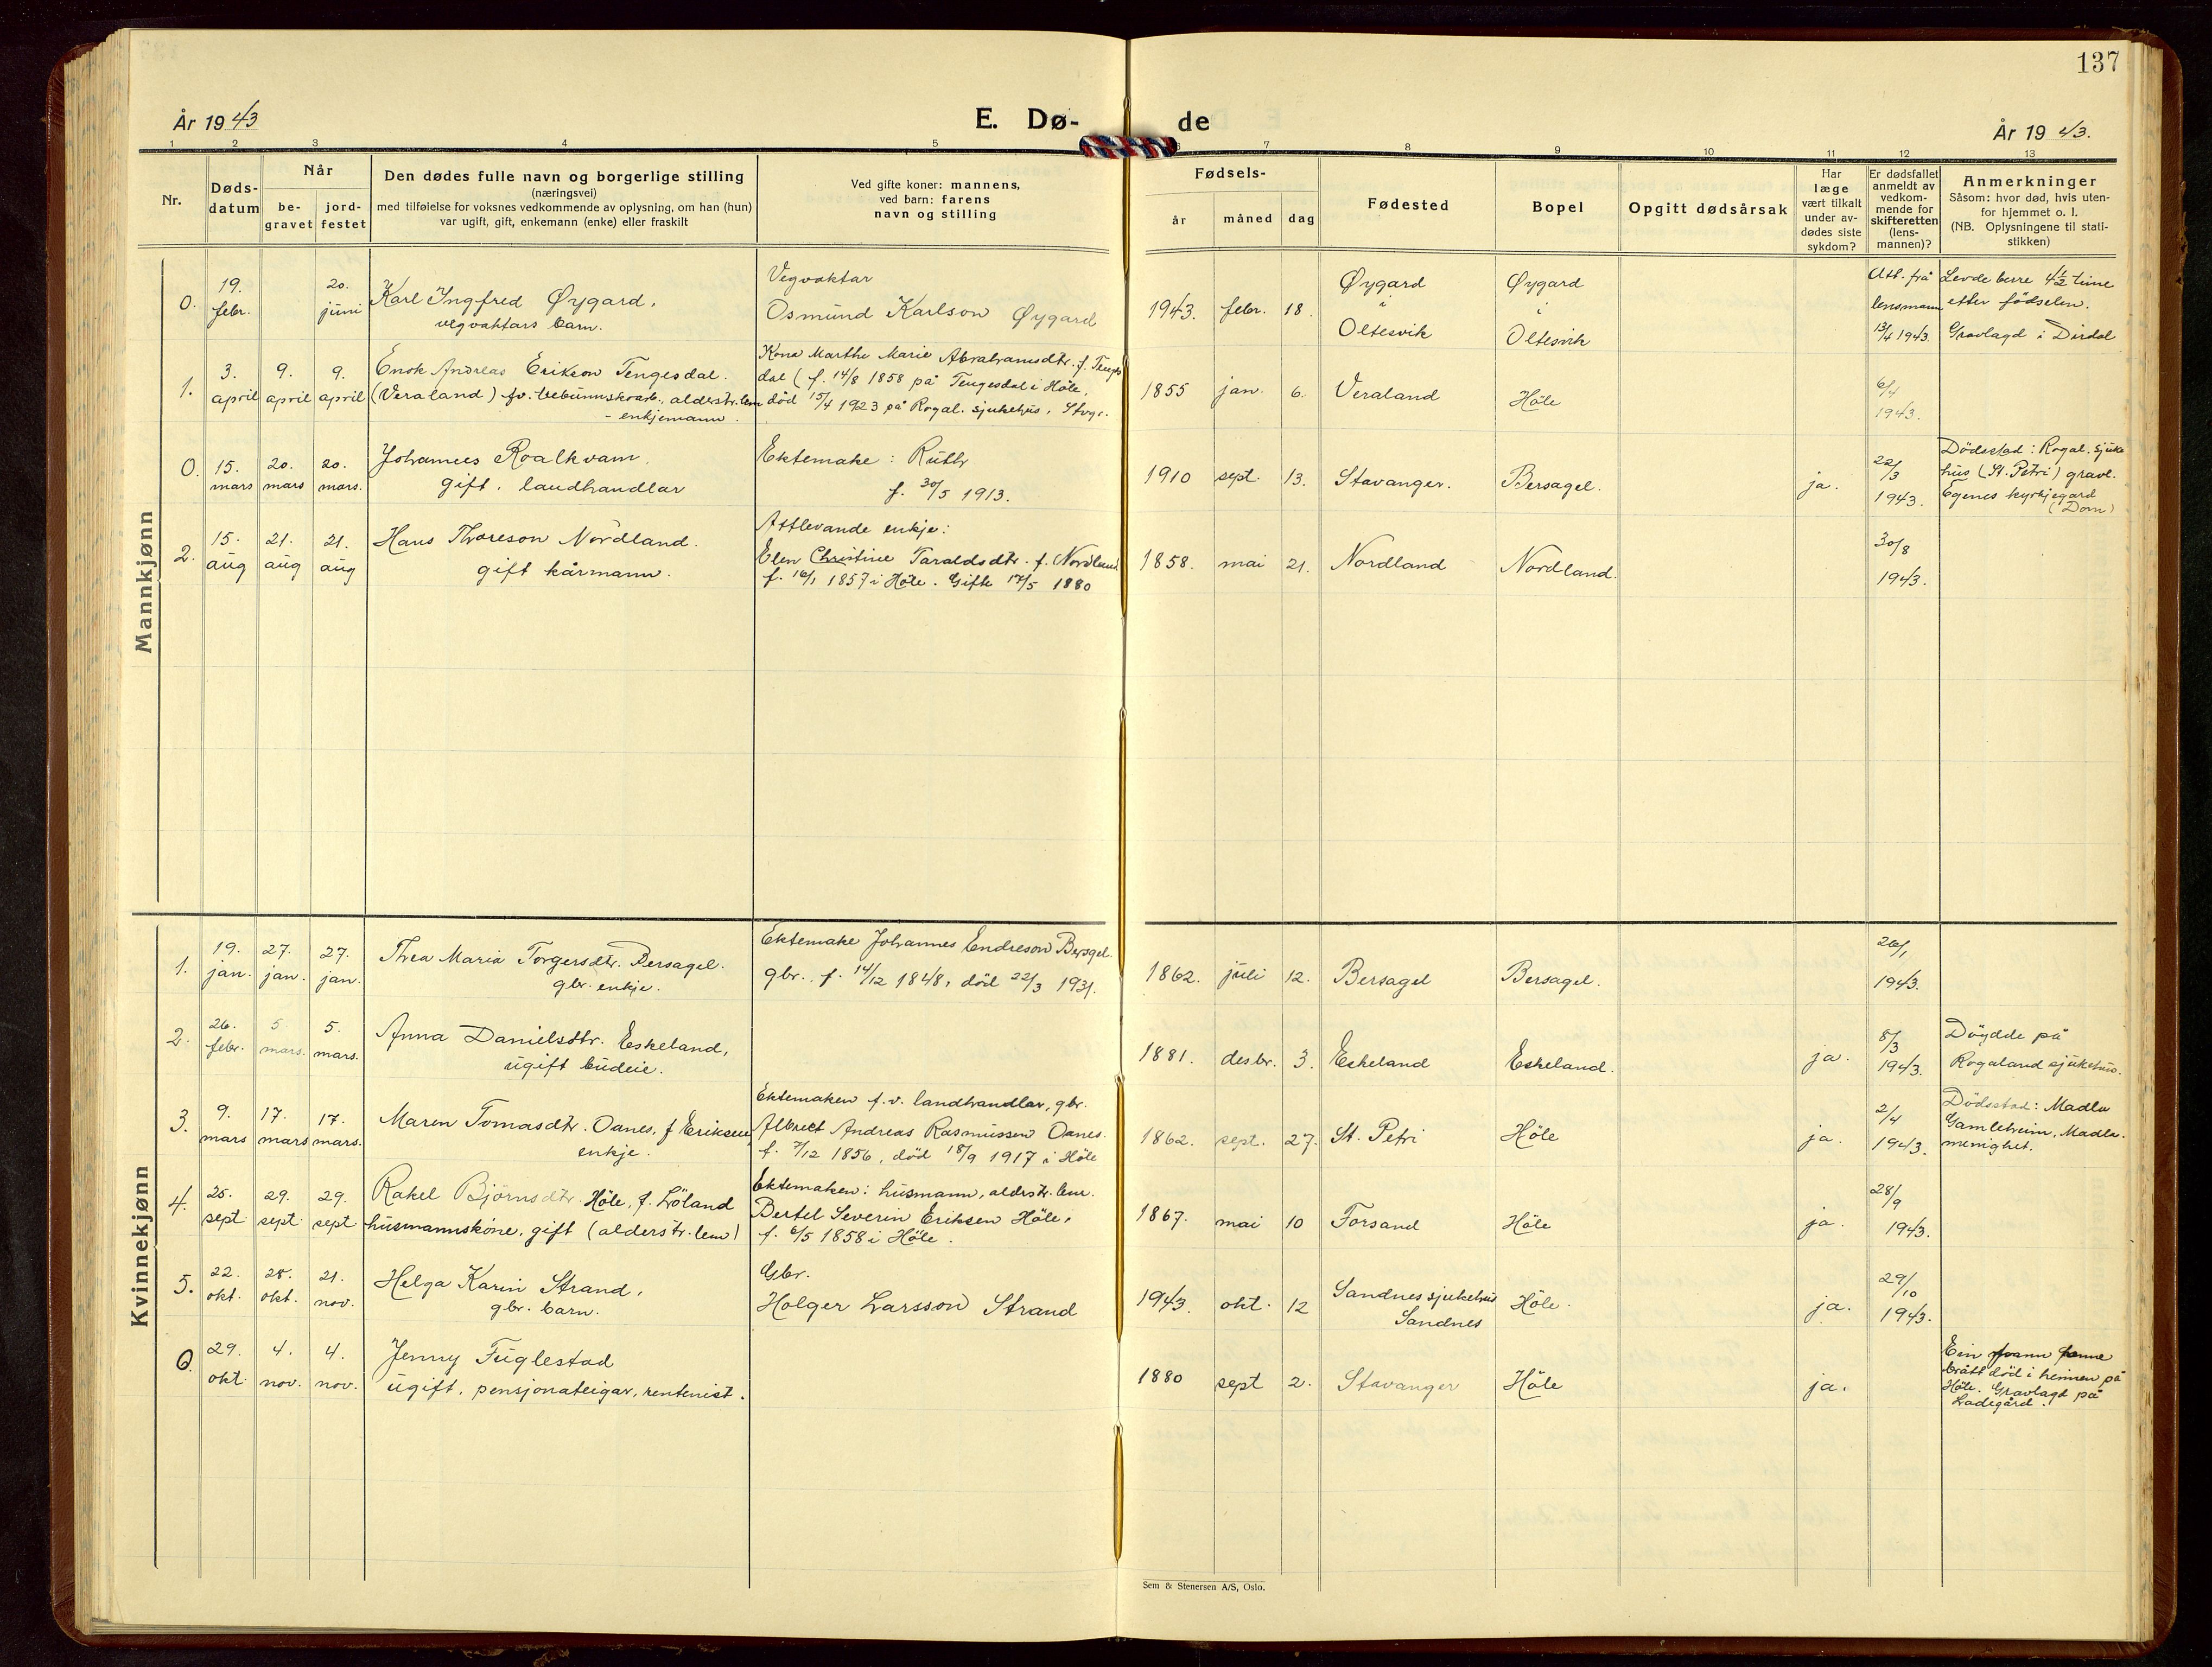 137
År 1943
E. Dø-
de
År 1943.
1 2 3 4 5 6 7 8 9 10 11 12 13
Nr.
Døds-
datum
Når
be-
gravet
jord-
festet
Den dødes fulle navn og borgerlige stilling
(næringsvei)
med tilføielse for voksnes vedkommende av oplysning, om han (hun)
var ugift, gift, enkemann (enke) eller fraskilt
Ved gifte koner: mannens,
ved barn: farens
navn og stilling
Fødsels-
år måned dag
Fødested
Bopel
Opgitt dødsårsak
Har
læge
vært tilkalt
under av-
dødes siste
sykdom?
Er dødsfallet
anmeldt av
vedkom-
mende for
skifteretten
(lens-
mannen)?
Anmerkninger
Såsom: hvor død, hvis uten-
for hjemmet o. l.
(NB. Oplysningene til stati-
stikken)
Mannkjønn
0.
19.
febr.
20.
juni
Karl Ingfred Øygard,
vegvaktars barn.
Vegvaktar
Osmund Karlson Øygard
1943. febr. 18.
Øygard
i
Oltesvik
Øygard
i
Oltesvik
Att. frå
lensmann
13/4 1943.
Levde berre 4½ time
etter födselen.
Gravlagd i Dirdal
1.
3.
april
9.
april
9.
april
Enok Andreas Erikson Tengesdal.
(Veraland) fv. trebunnskoarb., alderstr.lem
- enkjemann.
Kona Marthe Marie Abrahamsdtr. f. Tenges
dal ( f. 14/8 1858 på Tengesdal i Höle,
död 15/4 1923 på Rogal. sjukehus, Stvgr.
1855 jan. 6.
Veraland
Höle
6/4
1943.
0.
15.
mars
20.
mars
20.
mars.
Johannes Roalkvam.
gift, landhandlar
Ektemake: Ruth
f. 30/5 1913.
1910 sept. 13.
Stavanger.
Bersagel.
ja.
22/3
1943.
Dödsstad: Rogal. sjuke
hus (St. Petri) gravl.
Egenes kyrkjegard
(Dom)
2.
15.
aug
21.
aug
21.
aug
Hans Thoreson Nordland.
gift kårmann.
Attlevande enkje:
Elen Christine Taraldsdtr. f. Nordland
f. 16/1 1857 i Höle. Gifte 17/5 1880
1858. mai 21.
Nordland
Nordland.
30/8
1943.
Kvinnekjønn
1.
19.
jan.
27.
jan.
27.
jan.
Thea Maria Torgersdtr. Bersagel.
gbr. enkje.
Ektemake Johannes Endreson Bersgel.
gbr. f. 14/12 1848, död 22/3 1931.
1862. juli 12.
Bersagel
Bersagel.
26/1
1943.
2.
26.
febr.
5
mars.
5.
mars.
Anna Danielsdtr. Eskeland,
ugift budeie.
1881. desbr. 3.
Eskeland
Eskeland.
ja.
8/3
1943.
Döydde på
Rogaland sjukehus.
3.
9.
mars
17.
mars
17.
mars.
Maren Tomasdtr. Oanes, f. Eriksen
enkje.
Ektemaken f.v. landhandlar, gbr.
Albrect Andreas Rasmussen Oanes.
f. 7/12 1856, död 18/9 1917 i Höle
1862. sept. 27.
St. Petri
Höle
ja.
2/4
1943.
Dödsstad: Madla
Gamleheim, Madla-
menighet.
4.
25.
sept
29.
sept
29.
sept
Rakel Björnsdtr. Höle, f. Löland
husmannskone, gift (alderstr. lem)
Ektemaken: husmann, alderstr. lem.
Bertel Severin Eriksen Höle,
f. 6/5 1858 i Höle.
1867. mai 10
Forsand
Höle
ja.
28/9
1943.
5.
22.
okt.
28.
okt.
21.
nov.
Helga Karin Strand,
gbr. barn.
Gbr.
Holger Larsson Strand
1943. okt. 12
Sandnes sjukehus
Sandnes
Höle.
ja.
29/10
1943.
0.
29.
okt
4.
nov.
4.
nov.
Jenny Fuglestad
ugift, pensjonateigar, rentenist.
1880 sept 2.
Stavanger
Höle
ja.
brått död i heimen på
Höle. Gravlagd på
Ladegård.
Sem & Stenersen A/S, Oslo.